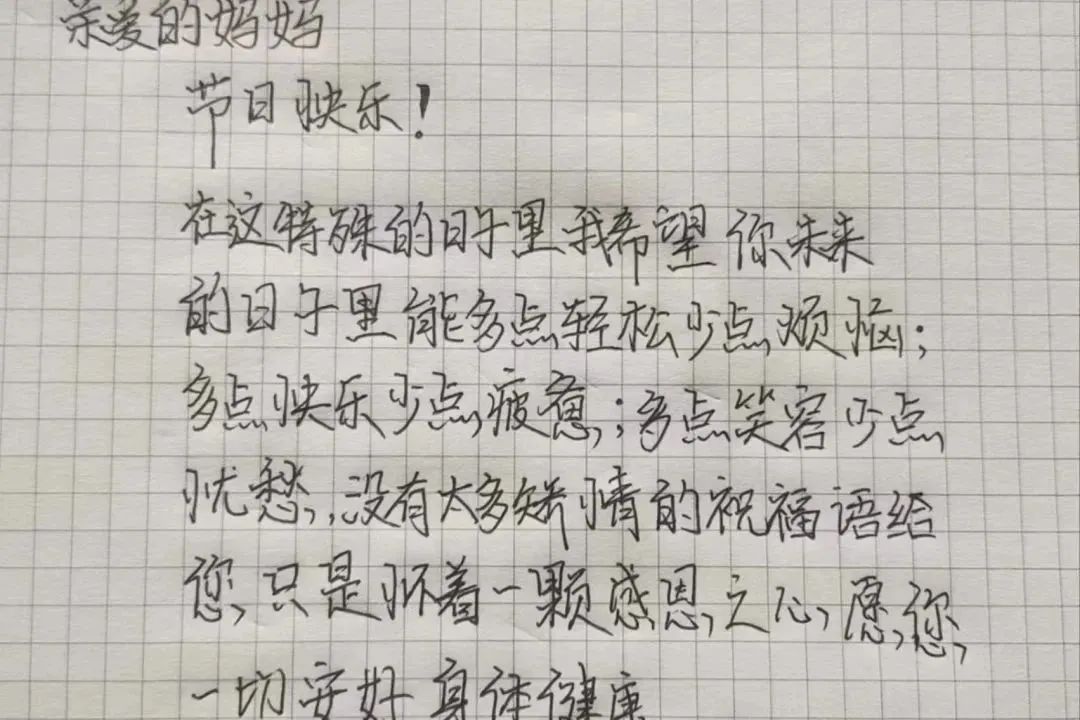 亲爱的妈妈
节日快乐！
在这特殊的日子里我希望你未来
的日子里能多点轻松少点烦恼；
多点快乐少点疲惫；多点笑容少点
忧愁，没有太多矫情的祝福语给
您，只是怀着一颗感恩之心，愿您，
一切安好身体健康